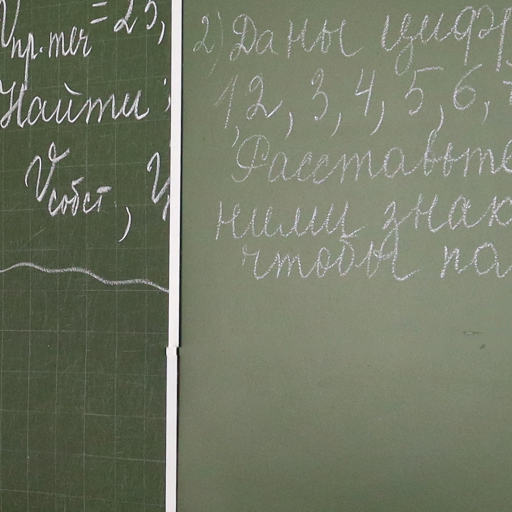 Vпр.теч = 25,
Найти:
Vсобст,
2) Даны цифр
1, 2, 3, 4, 5, 6,
Расставьте
ними знак
чтобы по